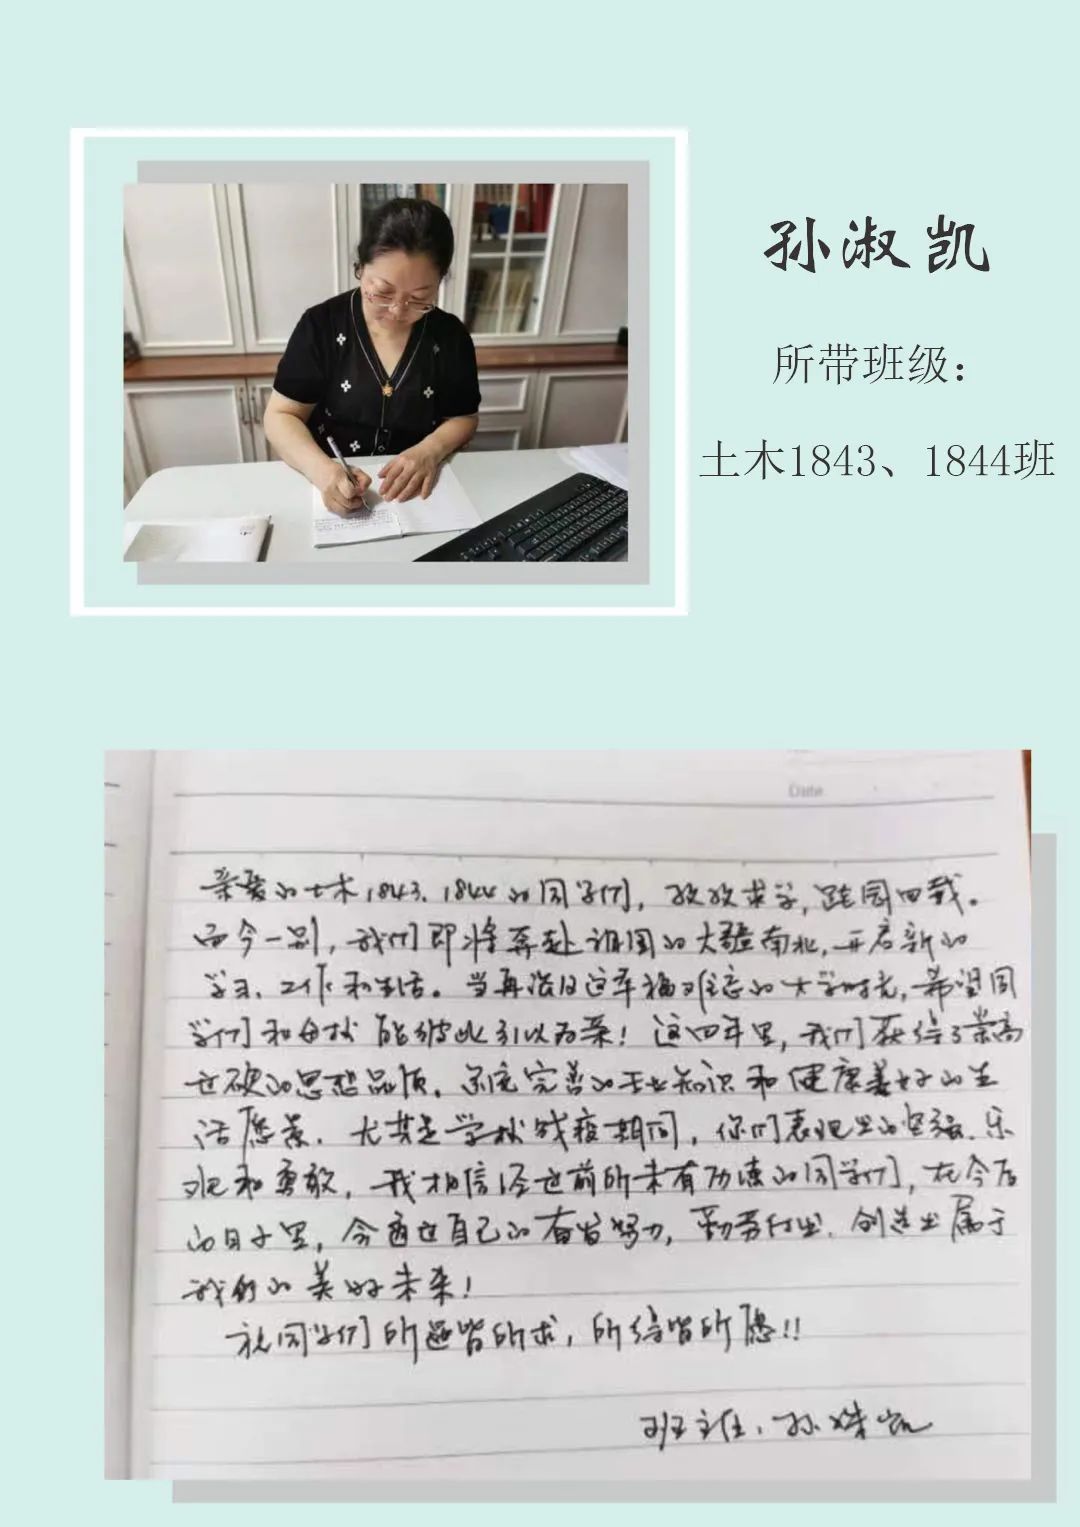 孙淑凯
所带班级：
土木1843、1844班
Date
亲爱的土木1843、1844的同学们，孜孜求学，践园四载。
而今一别，我们即将奔赴祖国的大疆南北，开启新的
学习、工作和生活。当再忆及这幸福难忘的大学时光，希望同
学们和母校能彼此引以为荣！这四年里，我们获得了崇高
过硬的思想品质、系统完善的专业知识和健康美好的生
活愿景。尤其是学校战疫期间，你们表现出的坚强、乐
观和勇敢，我相信经过前所未有历练的同学们，在今后
的日子里，会通过自己的奋发努力，勤劳付出，创造出属于
我们的美好未来！
祝同学们所遇皆所求，所得皆所愿!!
班主任：孙淑凯